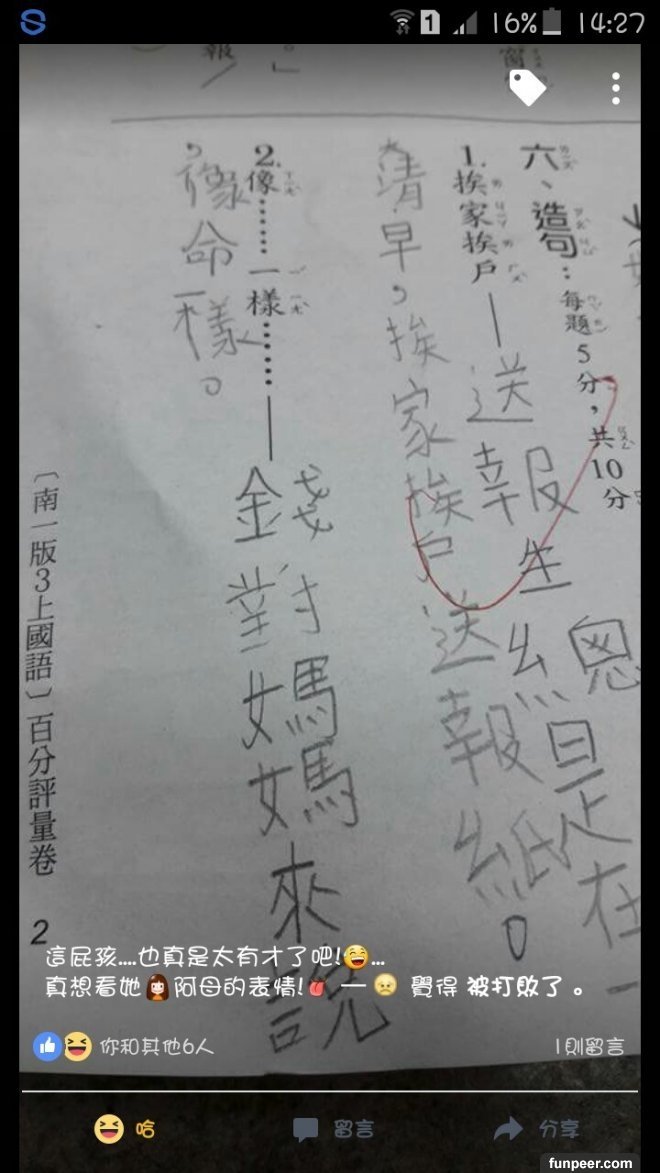 1 16% 14:27
窗
。」
報
六、造句：每題5分，共10分
1.挨家挨戶—送報生總是在一
大清早，挨家挨戶送報紙。
2.像……一樣……—錢對媽媽來說
，像命一樣。
〔南一版3上國語〕百分評量卷
2
這屁孩....也真是太有才了吧!😄...
真想看她👩阿母的表情!👅 — 😣 覺得 被打敗了 。
你和其他6人
1則留言
哈
留言
分享
funpeer.com